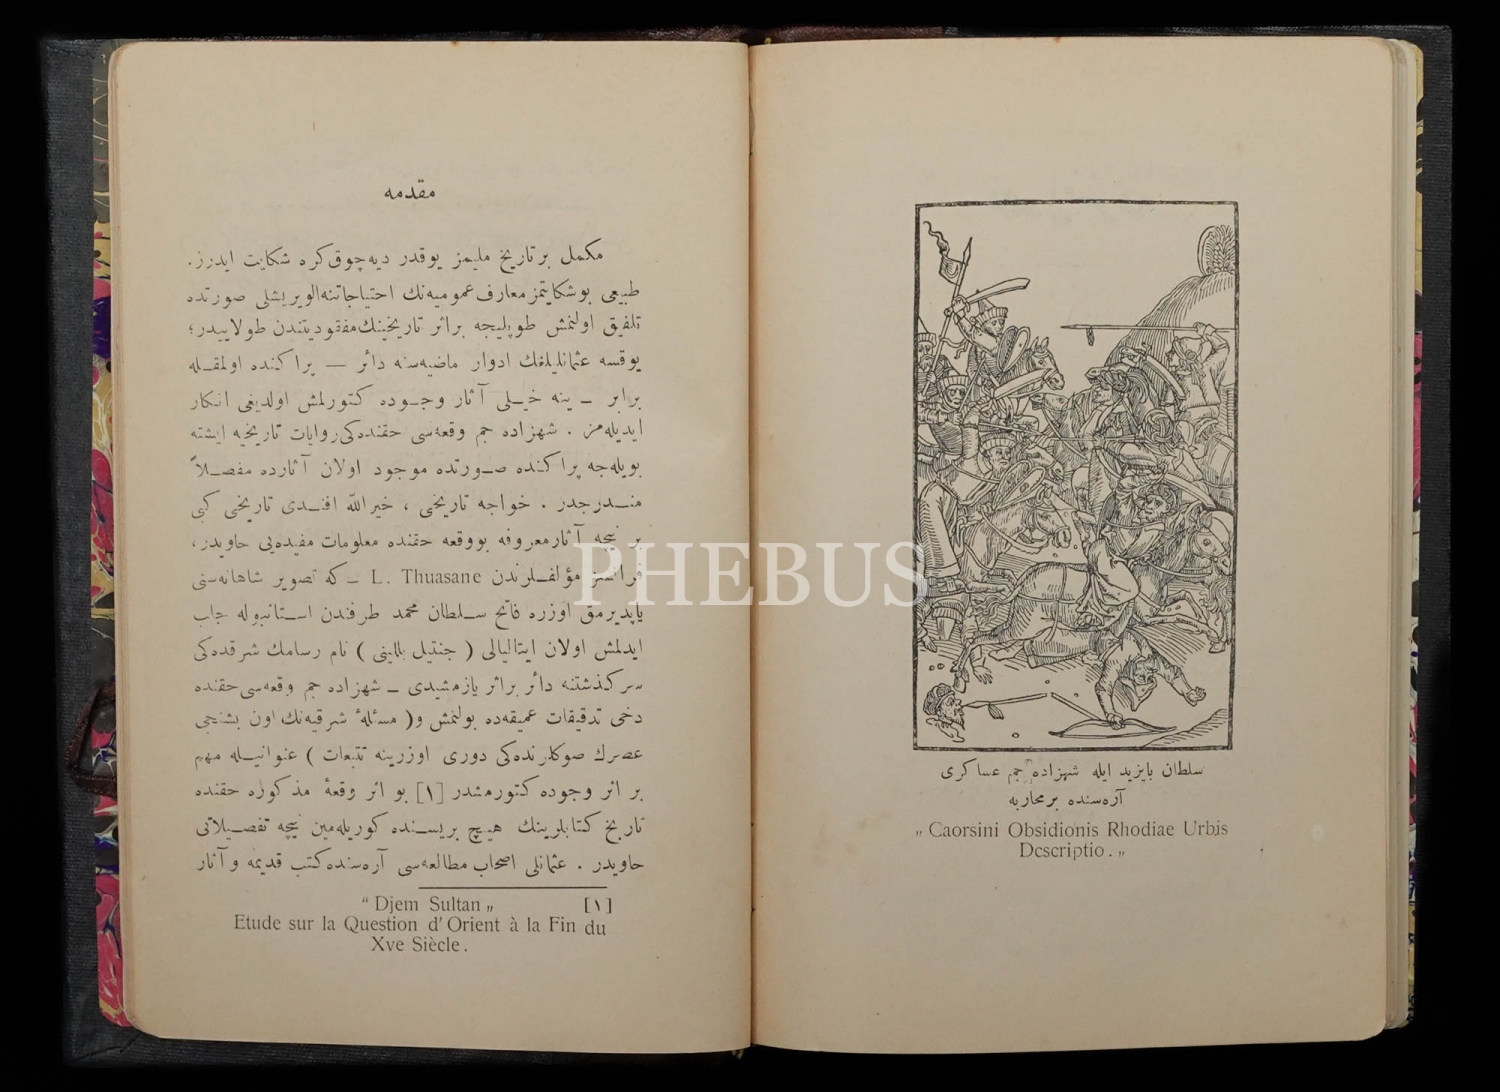 مقدمه
مكمل بر تاريخ مليمز يوقدر ديه چوق كره شكايت ايدرز.
طبيعى بو شكايتمز معارف عموميه نك احتياجاتنه الويريشلى صورتده
تلفيق اولنمش طوپليجه بر اثر تاريخينك مفقوديتندن طولاييدر؛
يوقسه عثمانليلغك ادوار ماضيه سنه دائر — پراكنده اولمقله
برابر — ينه خيلى آثار وجوده كتورلمش اولديغى انكار
ايديله مز . شهزاده جم وقعه سى حقنده كى روايات تاريخيه ايشته
بويله جه پراكنده صورتده موجود اولان آثارده مفصلاً
مندرجدر . خواجه تاريخى ، خيرالله افندى تاريخى كبى
بر نيچه آثار معروفه بو وقعه حقنده معلومات مفيده يى حاويدر،
فرانسز مؤلفلرندن L. Thuasane — كه تصوير شاهانه سنى
ياپديرمق اوزره فاتح سلطان محمد طرفندن استانبوله جلب
ايدلمش اولان ايتاليالى ( جنتيل بللينى ) نام رسامك شرقده كى
سركذشتنه دائر بر اثر يازمشيدى — شهزاده جم وقعه سى حقنده
دخى تدقيقات عميقه ده بولنمش و( مسئلهٔ شرقيه نك اون بشنجى
عصرك صوكلرنده كى دورى اوزرينه تتبعات ) عنوانيله مهم
بر اثر وجوده كتورمشدر [١] بو اثر وقعهٔ مذكوره حقنده
تاريخ كتابلرينك هيچ بريسنده كوريله مين نيچه تفصيلاتى
حاويدر . عثمانلى اصحاب مطالعه سى آره سنده كتب قديمه و آثار
[١] “ Djem Sultan „
Etude sur la Question d' Orient à la Fin du
Xve Siècle .
سلطان بايزيد ايله شهزاده جم عساكرى
آره سنده بر محاربه
„ Caorsini Obsidionis Rhodiae Urbis
Descriptio . „
PHEBUS